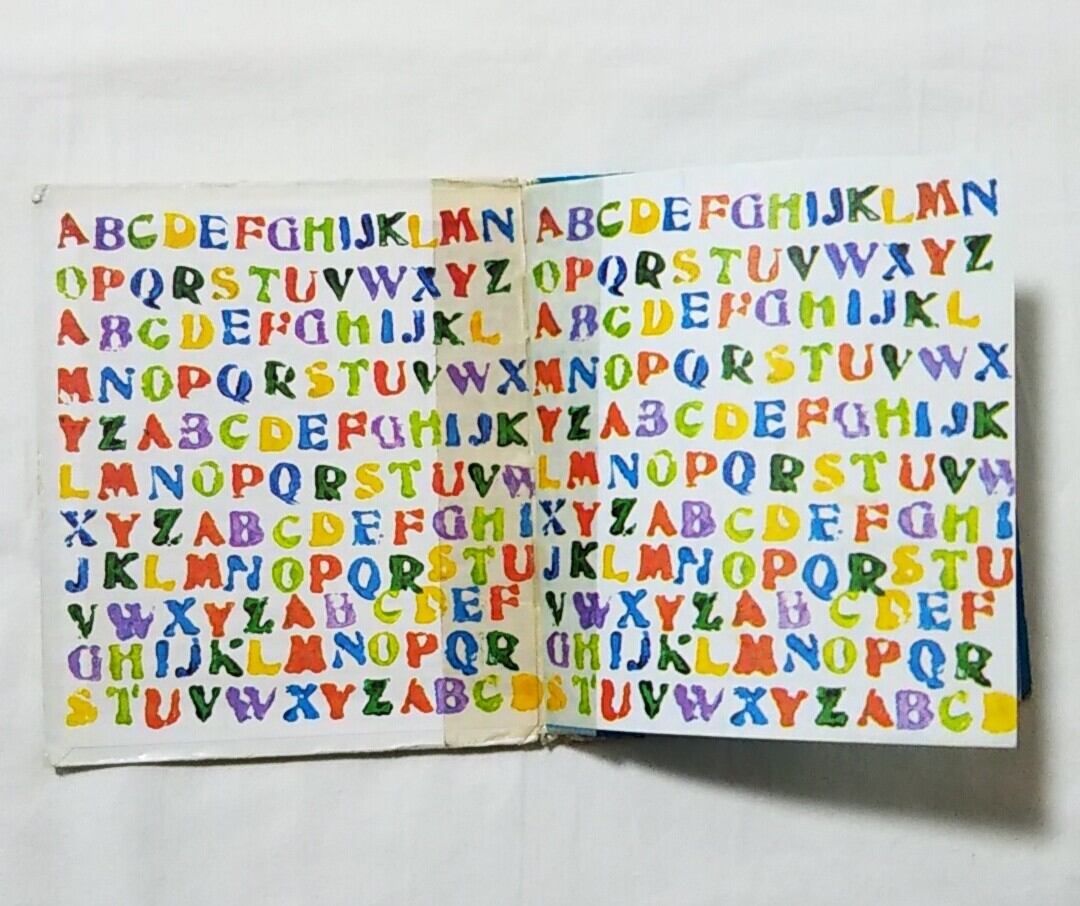 ABCDEFGHIJKLMN
OPQRSTUVWXYZ
ABCDEFGHIJKL
MNOPQRSTUVWX
YZABCDEFGHIJK
LMNOPQRSTUVW
XYZABCDEFGHI
JKLMNOPQRSTU
VWXYZABCDEF
GHIJKLMNOPQR
STUVWXYZABCD
ABCDEFGHIJKLMN
OPQRSTUVWXYZ
ABCDEFGHIJKL
MNOPQRSTUVWX
YZABCDEFGHIJK
LMNOPQRSTUVW
XYZABCDEFGHI
JKLMNOPQRSTU
VWXYZABCDEF
GHIJKLMNOPQR
STUVWXYZABCD